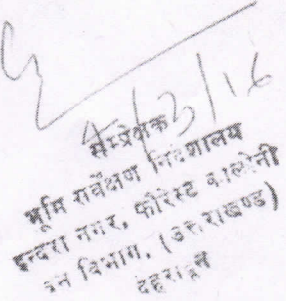 /3/16
सम्प्रेक्षक
भूमि सर्वेक्षण निदेशालय
इन्दिरा नगर, फॉरेस्ट कालोनी
वन विभाग, (उत्तराखण्ड)
देहरादून